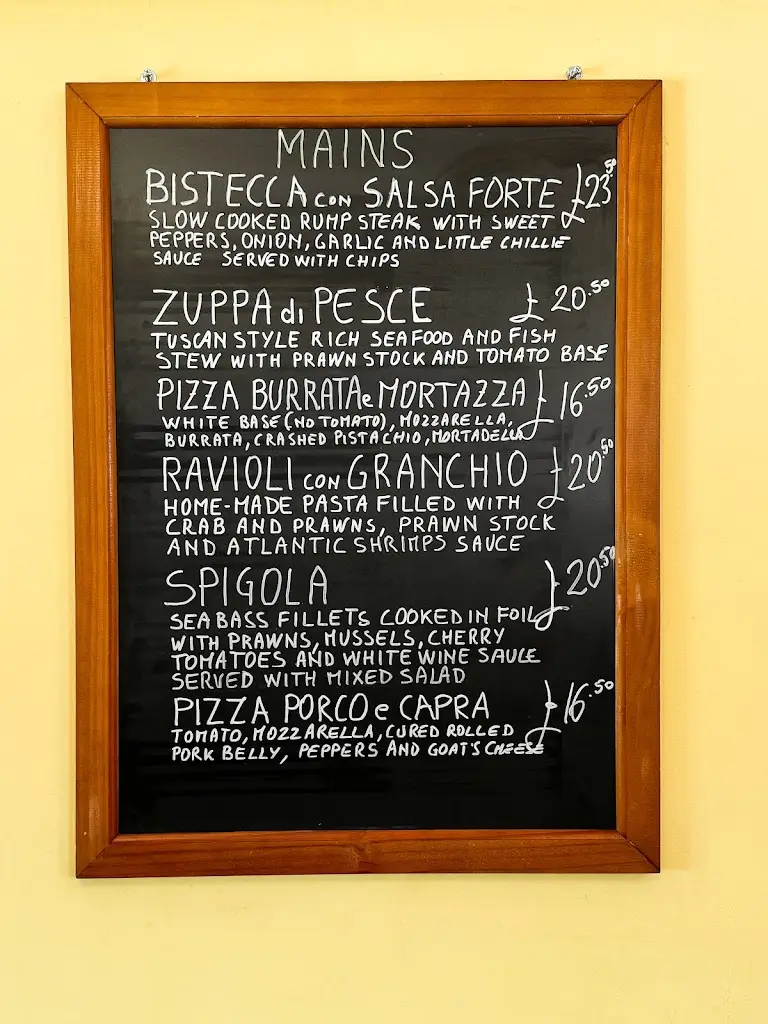 MAINS
BISTECCA CON SALSA FORTE £23.50
SLOW COOKED RUMP STEAK WITH SWEET
PEPPERS, ONION, GARLIC AND LITTLE CHILLIE
SAUCE SERVED WITH CHIPS
ZUPPA di PESCE £20.50
TUSCAN STYLE RICH SEAFOOD AND FISH
STEW WITH PRAWN STOCK AND TOMATO BASE
PIZZA BURRATA e MORTAZZA £16.50
WHITE BASE (NO TOMATO), MOZZARELLA,
BURRATA, CRASHED PISTACHIO, MORTADELLA
RAVIOLI CON GRANCHIO £20.50
HOME-MADE PASTA FILLED WITH
CRAB AND PRAWNS, PRAWN STOCK
AND ATLANTIC SHRIMPS SAUCE
SPIGOLA £20.50
SEA BASS FILLETS COOKED IN FOIL
WITH PRAWNS, MUSSELS, CHERRY
TOMATOES AND WHITE WINE SAUCE
SERVED WITH MIXED SALAD
PIZZA PORCO e CAPRA £16.50
TOMATO, MOZZARELLA, CURED ROLLED
PORK BELLY, PEPPERS AND GOAT'S CHEESE